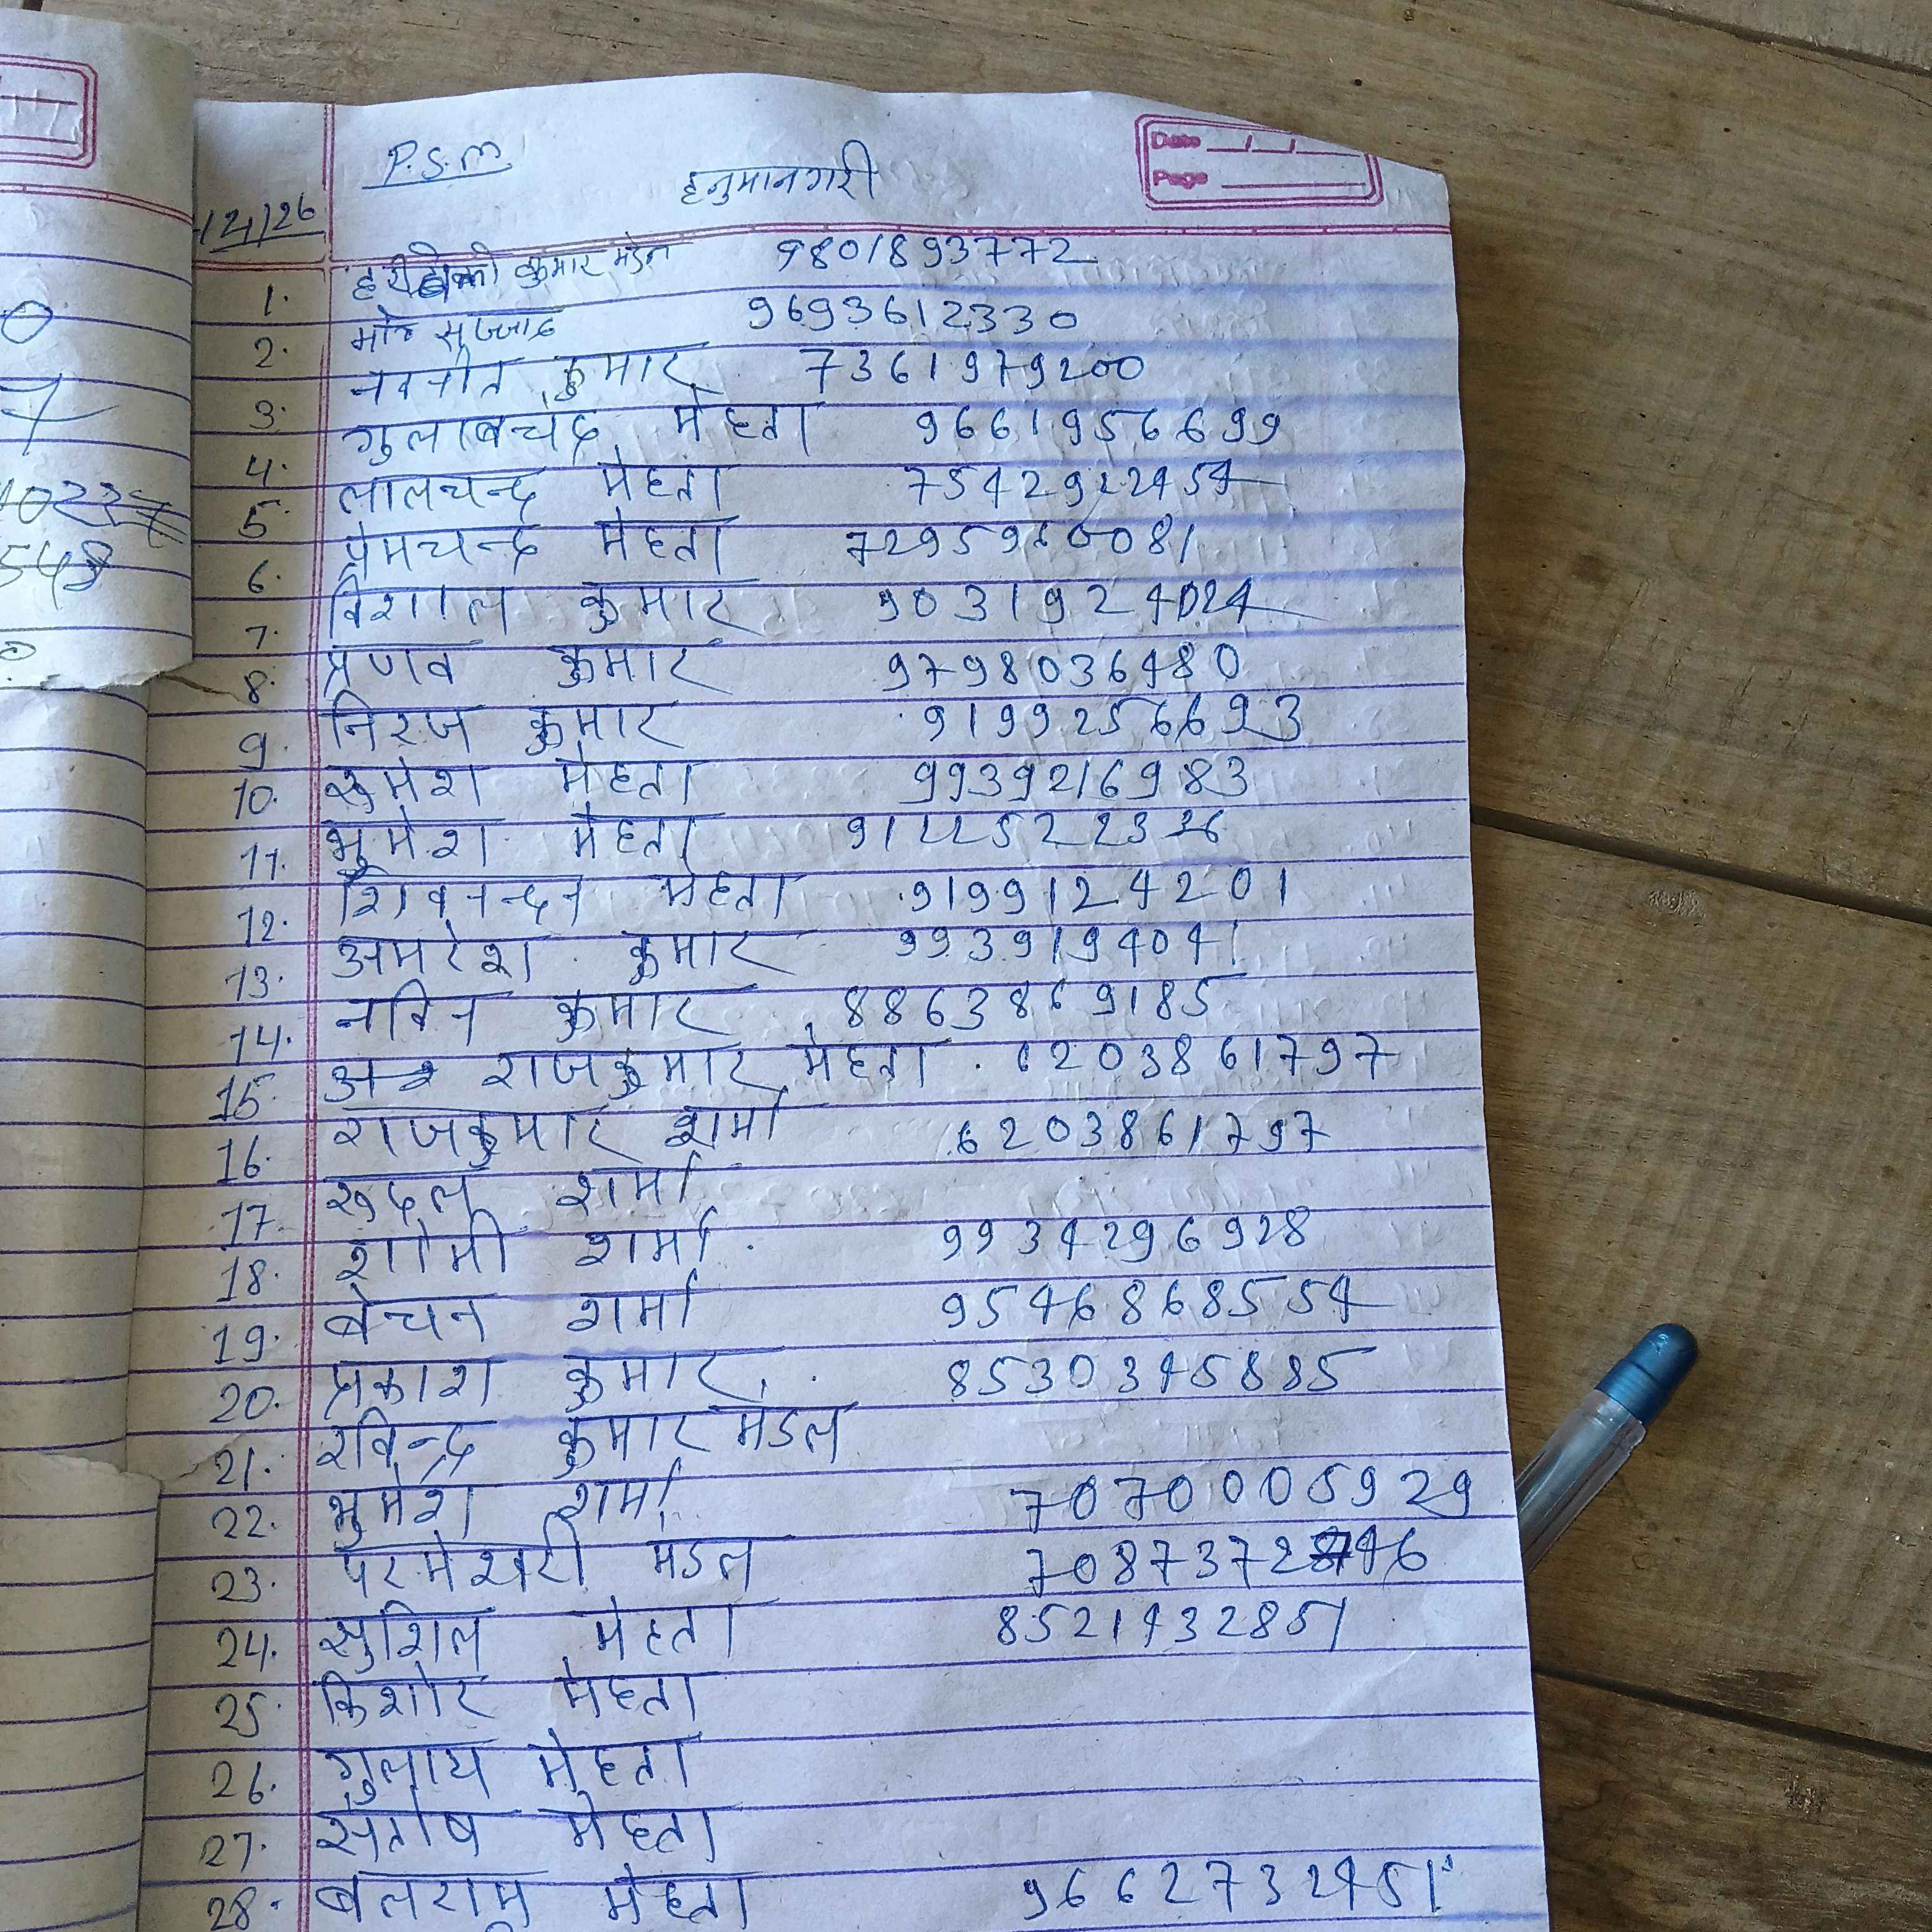 P.S.M
हनुमानगरी
Date __/__/__
Page
/2/26
1. कुमार मंडल 9801893772
2. मो० सज्जाद 9693612330
3. नवनीत कुमार 7361979200
4. गुलाबचंद मेहता 9661956699
5. लालचन्द मेहता 7542922454
6. प्रेमचन्द मेहता 7295960081
7. विशाल कुमार 9031924024
8. प्रणव कुमार 9798036480
9. निरज कुमार 9199256693
10. सुमेश मेहता 9939216983
11. भुमेश मेहता 9122522326
12. शिवनन्दन मेहता 9199124201
13. अमरेश कुमार 9939194041
14. नविन कुमार 8863869185
15. राजकुमार मेहता 6203861797
16. राजकुमार शर्मा 6203861797
17. रुदल शर्मा
18. शोमी शर्मा 9934296928
19. बेचन शर्मा 9546868554
20. प्रकाश कुमार 8530345885
21. रविन्द्र कुमार मंडल
22. भुमेश शर्मा 7070005929
23. परमेश्वरी मंडल
24. सुशिल मेहता 8521432851
25. किशोर मेहता
26. गुलाय मेहता
27. संतोष मेहता
28. बलराम मेहता 9662732451
548